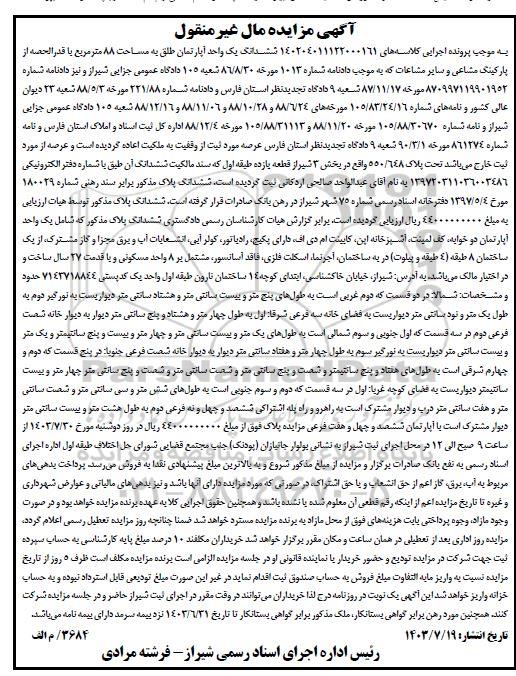 آگهی مزایده مال غیرمنقول
به موجب پرونده اجرایی کلاسه‌های ۱۴۰۲۰۴۰۱۱۱۲۲۰۰۰۱۶۱ ششدانگ یک واحد آپارتمان طلق به مساحت ۸۸ مترمربع با قدرالحصه از
پارکینگ مشاعی و سایر مشاعات که به موجب دادنامه شماره ۱۰۱۳ مورخه ۸۶/۸/۳۰ شعبه ۱۰۵ دادگاه عمومی جزایی شیراز و نیز دادنامه شماره
۸۷۰۹۹۷۱۱۹۹۰۱۹۵۲ مورخه ۸۷/۱۱/۱۷ شعبه ۹ دادگاه تجدیدنظر استان فارس و دادنامه شماره ۲۲۱/۸۸ مورخه ۸۸/۵/۳ شعبه ۲۳ دیوان
عالی کشور و نامه‌های شماره ۱۰۵/۸۳/۲۴/۱۶ مورخه‌های ۸۸/۶/۲۴ و ۸۸/۱۰/۲۸ و ۸۸/۱۱/۰۶ و ۸۸/۱۲/۱۶ شعبه ۱۰۵ دادگاه عمومی جزایی
شیراز و نامه شماره ۱۰۵/۸۸/۳۰۶۷۰ مورخه ۸۸/۱۱/۲۰ و ۱۰۵/۸۸/۳۱۱۱۳ مورخه ۸۸/۱۲/۴ اداره کل ثبت اسناد و املاک استان فارس و نامه
شماره ۸۶۱۲۷۴ مورخه ۹۰/۳/۱ شعبه ۹ دادگاه تجدیدنظر استان فارس عرصه مورد ثبت از وقفیت به ملکیت اعاده گردیده است و عرصه از مورد
ثبت خارج می‌باشد تحت پلاک ۵۵۰/۶۴۸ واقع در بخش ۳ شیراز قطعه یازده طبقه اول که سند مالکیت ششدانگ آن طبق با شماره دفتر الکترونیکی
۱۳۹۷۲۰۳۱۱۰۳۶۰۰۳۴۸۶ به نام آقای عبدالواحد صالحی اردکانی ثبت گردیده است، ششدانگ پلاک مذکور برابر سند رهنی شماره ۱۸۰۰۲۹
مورخ ۱۳۹۷/۵/۴ دفترخانه اسناد رسمی شماره ۷۵ شهر شیراز در رهن بانک صادرات قرار گرفته است. ششدانگ پلاک مذکور توسط هیات ارزیابی
به مبلغ ۴۴۰۰۰۰۰۰۰۰۰ ریال ارزیابی گردیده است. برابر گزارش هیات کارشناسان رسمی دادگستری ششدانگ پلاک مذکور که شامل یک واحد
آپارتمان دو خوابه، کف لمینت، آشپزخانه اپن، کابینت ام دی اف، دارای پکیج، رادیاتور، کولر آبی، انشعابات آب و برق مجزا و گاز مشترک، از یک
ساختمان ۸ طبقه (۴ طبقه و پیلوت) در به ساختمان، آجرنما، اسکلت فلزی، فاقد آسانسور، مشتمل بر ۸ واحد مسکونی و با قدمت ۲۷ سال ساخت و
در اختیار مالک می‌باشد. به آدرس: شیراز، خیابان خاکشناسی، ابتدای کوچه۱۴ ساختمان نارون طبقه اول واحد یک کدپستی ۷۱۴۳۷۱۸۸۴۴ حدود
و مشخصات: شمالا: در دو قسمت که دوم غربی است به طول‌های پنج متر و بیست سانتی متر و هشتاد سانتی متر دیواریست به نورگیر دوم به
طول یک متر و نود سانتی متر دیواریست به فضای خانه سه فرعی شرقا: اول به طول چهار متر و هشتاد و پنج سانتی متر دیوار به دیوار خانه شصت
فرعی دوم در سه قسمت که اول جنوبی و سوم شمالی است به طول‌های یک متر و بیست سانتی متر و چهار متر و بیست و پنج سانتیمتر و یک متر
و بیست سانتی متر دیواریست به نورگیر سوم به طول چهار متر و هفتاد سانتی متر دیوار به دیوار خانه شصت فرعی جنوبا: در پنج قسمت که دوم و
چهارم شرقی است به طول‌های هفتاد و پنج سانتیمتر و شصت و پنج سانتی متر و شصت سانتی متر و شصت و پنج سانتی متر چهار متر و بیست
سانتیمتر دیواریست به فضای کوچه غربا: اول در سه قسمت که دوم و سوم جنوبی است به طول‌های شش متر و سی سانتی متر و شصت سانتی
متر و هفت سانتی متر درب و دیوار مشترک است به راهرو و راه پله اشتراکی ششصد و چهل و نه فرعی دوم به طول هشت متر و بیست سانتی متر
دیوار مشترک است با آپارتمان ششصد و چهل و هفت فرعی مزایده پلاک فوق از مبلغ ۴۴۰۰۰۰۰۰۰۰۰ ریال در روز دوشنبه مورخ ۱۴۰۳/۷/۳۰ از
ساعت ۹ صبح الی ۱۲ در محل اجرای ثبت شیراز به نشانی بولوار جانبازان (پودنک) جنب مجتمع قضایی شورای حل اختلاف طبقه اول اداره اجرای
اسناد رسمی به نفع بانک صادرات برگزار و مزایده از مبلغ مذکور شروع و به بالاترین مبلغ پیشنهادی نقدا به فروش می‌رسد. پرداخت بدهی‌های
مربوط به آب، برق، گاز اعم از حق انشعاب و یا حق اشتراک، در صورتی که مورد مزایده دارای آنها باشد و نیز بدهی‌های مالیاتی و عوارض شهرداری
و غیره تا تاریخ مزایده اعم از اینکه رقم قطعی آن معلوم شده یا نشده باشد و همچنین حقوق اجرایی کلا به عهده برنده مزایده خواهد بود و در صورت
وجود مازاد، وجوه پرداختی بابت هزینه‌های فوق از محل مازاد به برنده مزایده مسترد خواهد شد ضمنا چنانچه روز مزایده تعطیل رسمی اعلام گردد،
مزایده روز اداری بعد از تعطیلی در همان ساعت و مکان مقرر برگزار خواهد شد خریداران مکلفند ۱۰ درصد مبلغ پایه کارشناسی به حساب سپرده
ثبت جهت شرکت در مزایده تودیع و حضور خریدار یا نماینده قانونی او در جلسه مزایده الزامی است برنده مزایده مکلف است ظرف ۵ روز از تاریخ
مزایده نسبت به واریز مابه التفاوت مبلغ فروش به حساب صندوق ثبت اقدام نماید در غیر این صورت مبلغ تودیعی قابل استرداد نبوده و به حساب
خزانه واریز خواهد شد این آگهی یک نوبت در روزنامه درج لذا خریداران می‌توانند در وقت مقرر در اجرای ثبت شیراز حاضر و در جلسه مزایده شرکت
کنند. همچنین مورد رهن برابر گواهی بستانکار، ملک مذکور برابر گواهی بستانکار تا تاریخ ۱۴۰۳/۶/۳۱ نزد بیمه سرمد دارای بیمه نامه می‌باشد.
تاریخ انتشار: ۱۴۰۳/۷/۱۹
۳۶۸۴/ م الف
رئیس اداره اجرای اسناد رسمی شیراز- فرشته مرادی